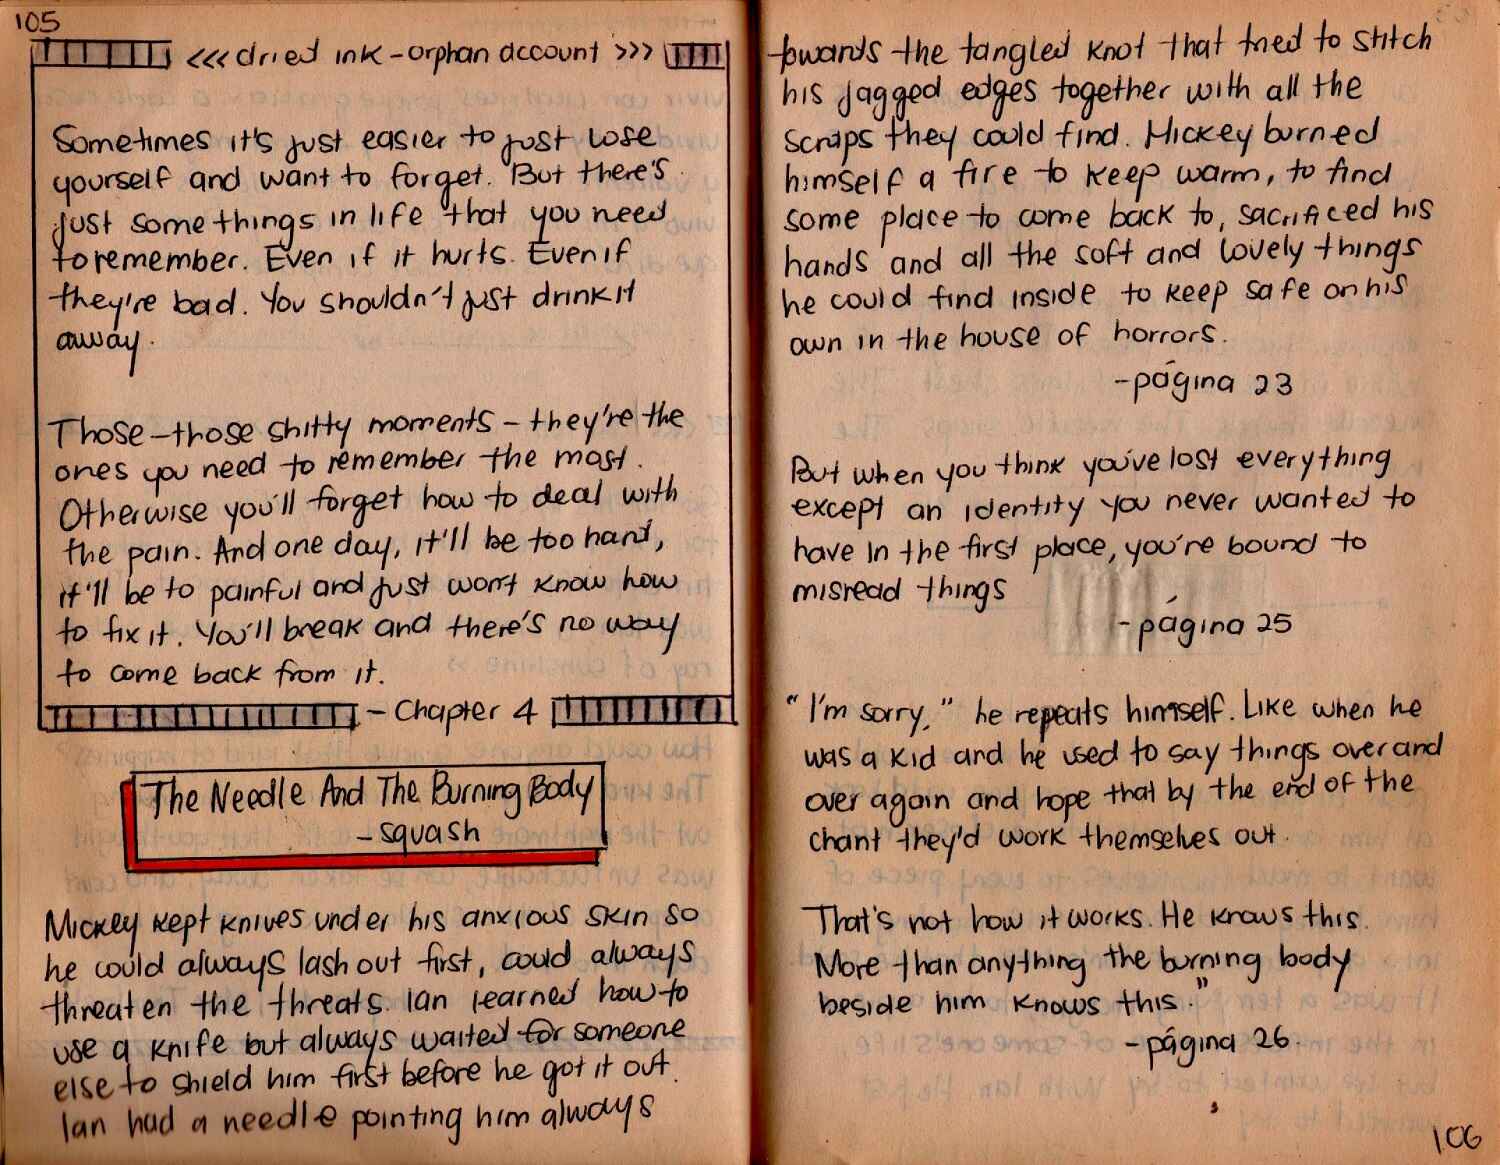 105
<<< dried ink - orphan account >>>
Sometimes it's just easier to just lose
yourself and want to forget. But there's
just some things in life that you need
to remember. Even if it hurts. Even if
they're bad. You shouldn't just drink it
away.
Those - those shitty moments - they're the
ones you need to remember the most.
Otherwise you'll forget how to deal with
the pain. And one day, it'll be too hard,
it'll be to painful and just won't know how
to fix it. You'll break and there's no way
to come back from it.
- Chapter 4
The Needle And The Burning Body
- squash
Mickey kept knives under his anxious skin so
he could always lash out first, could always
threaten the threats. Ian learned how to
use a knife but always waited for someone
else to shield him first before he got it out.
Ian had a needle pointing him always
towards the tangled knot that tried to stitch
his jagged edges together with all the
scraps they could find. Mickey burned
himself a fire to keep warm, to find
some place to come back to, sacrificed his
hands and all the soft and lovely things
he could find inside to keep safe on his
own in the house of horrors.
- página 23
But when you think you've lost everything
except an identity you never wanted to
have in the first place, you're bound to
misread things
- página 25
"I'm sorry," he repeats himself. Like when he
was a kid and he used to say things over and
over again and hope that by the end of the
chant they'd work themselves out.
That's not how it works. He knows this.
More than anything the burning body
beside him knows this."
- página 26.
106